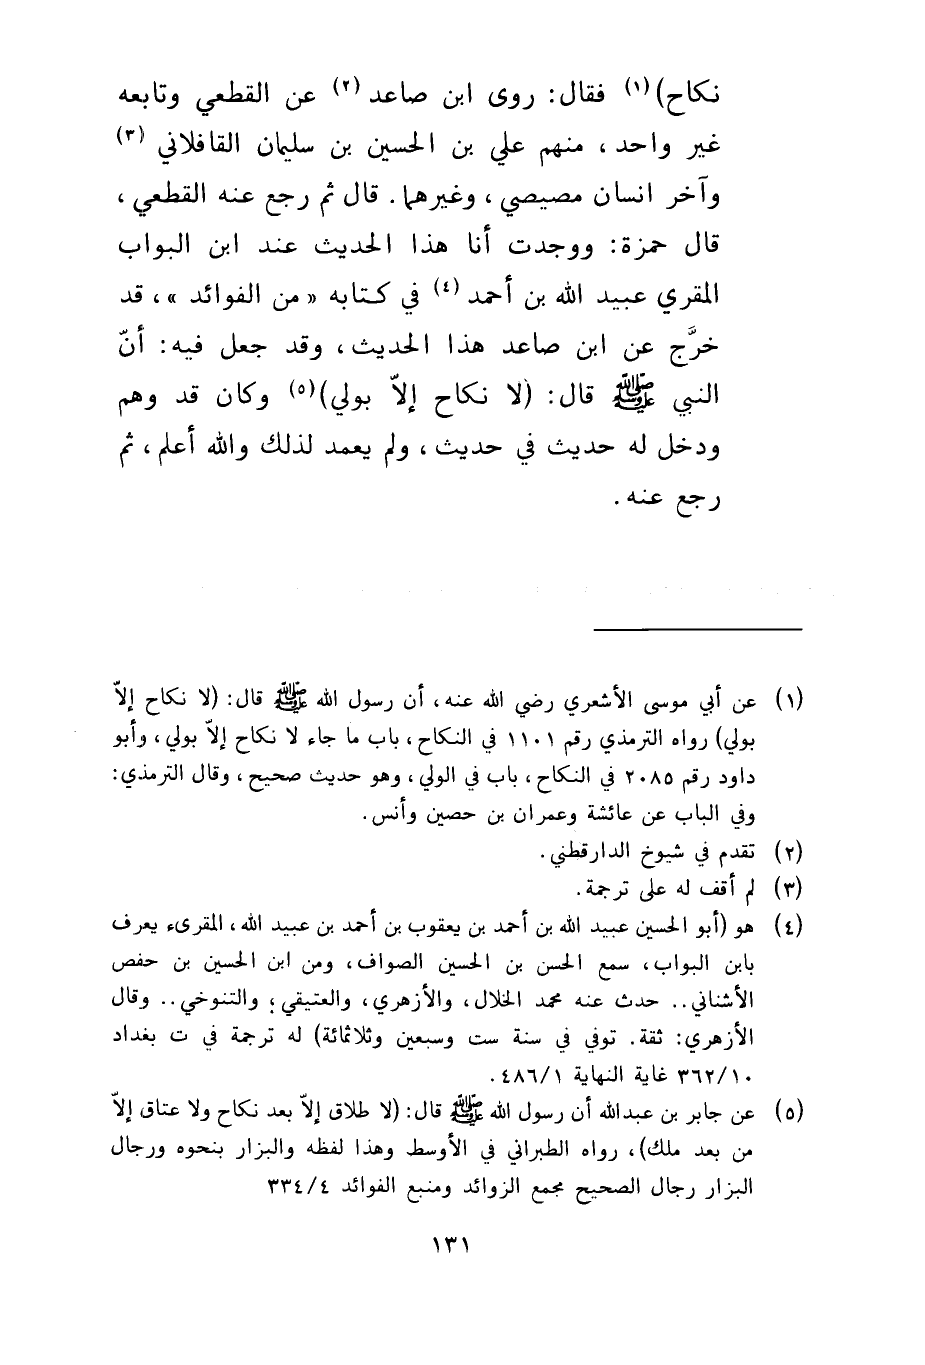 نكاح)(١) فقال: روى ابن صاعد (٢) عن القطعي وتابعه
غير واحد، منهم علي بن الحسين بن سليمان القافلاني (٣)
وآخر انسان مصيصي، وغيرهما. قال ثم رجع عنه القطعي،
قال حمزة: ووجدت أنا هذا الحديث عند ابن البواب
المقري عبيد الله بن أحمد (٤) في كتابه «من الفوائد»، قد
خرَّج عن ابن صاعد هذا الحديث، وقد جعل فيه: أنّ
النبي ﷺ قال: (لا نكاح إلاّ بولي)(٥) وكان قد وهم
ودخل له حديث في حديث، ولم يعمد لذلك والله أعلم، ثم
رجع عنه.
(١) عن أبي موسى الأشعري رضي الله عنه، أن رسول الله ﷺ قال: (لا نكاح إلاّ
بولي) رواه الترمذي رقم ١١٠١ في النكاح، باب ما جاء لا نكاح إلاّ بولي، وأبو
داود رقم ٢٠٨٥ في النكاح، باب في الولي، وهو حديث صحيح، وقال الترمذي:
وفي الباب عن عائشة وعمران بن حصين وأنس.
(٢) تقدم في شيوخ الدارقطني.
(٣) لم أقف له على ترجمة.
(٤) هو (أبو الحسين عبيد الله بن أحمد بن يعقوب بن أحمد بن عبيد الله، المقرىء يعرف
بابن البواب، سمع الحسن بن الحسين الصواف، ومن ابن الحسين بن حفص
الأشناني.. حدث عنه محمد الخلال، والأزهري، والعتيقي؛ والتنوخي.. وقال
الأزهري: ثقة. توفي في سنة ست وسبعين وثلاثمائة) له ترجمة في ت بغداد
٣٦٢/١٠ غاية النهاية ٤٨٦/١.
(٥) عن جابر بن عبدالله أن رسول الله ﷺ قال: (لا طلاق إلاّ بعد نكاح ولا عتاق إلاّ
من بعد ملك)، رواه الطبراني في الأوسط وهذا لفظه والبزار بنحوه ورجال
البزار رجال الصحيح مجمع الزوائد ومنبع الفوائد ٣٣٤/٤
١٣١